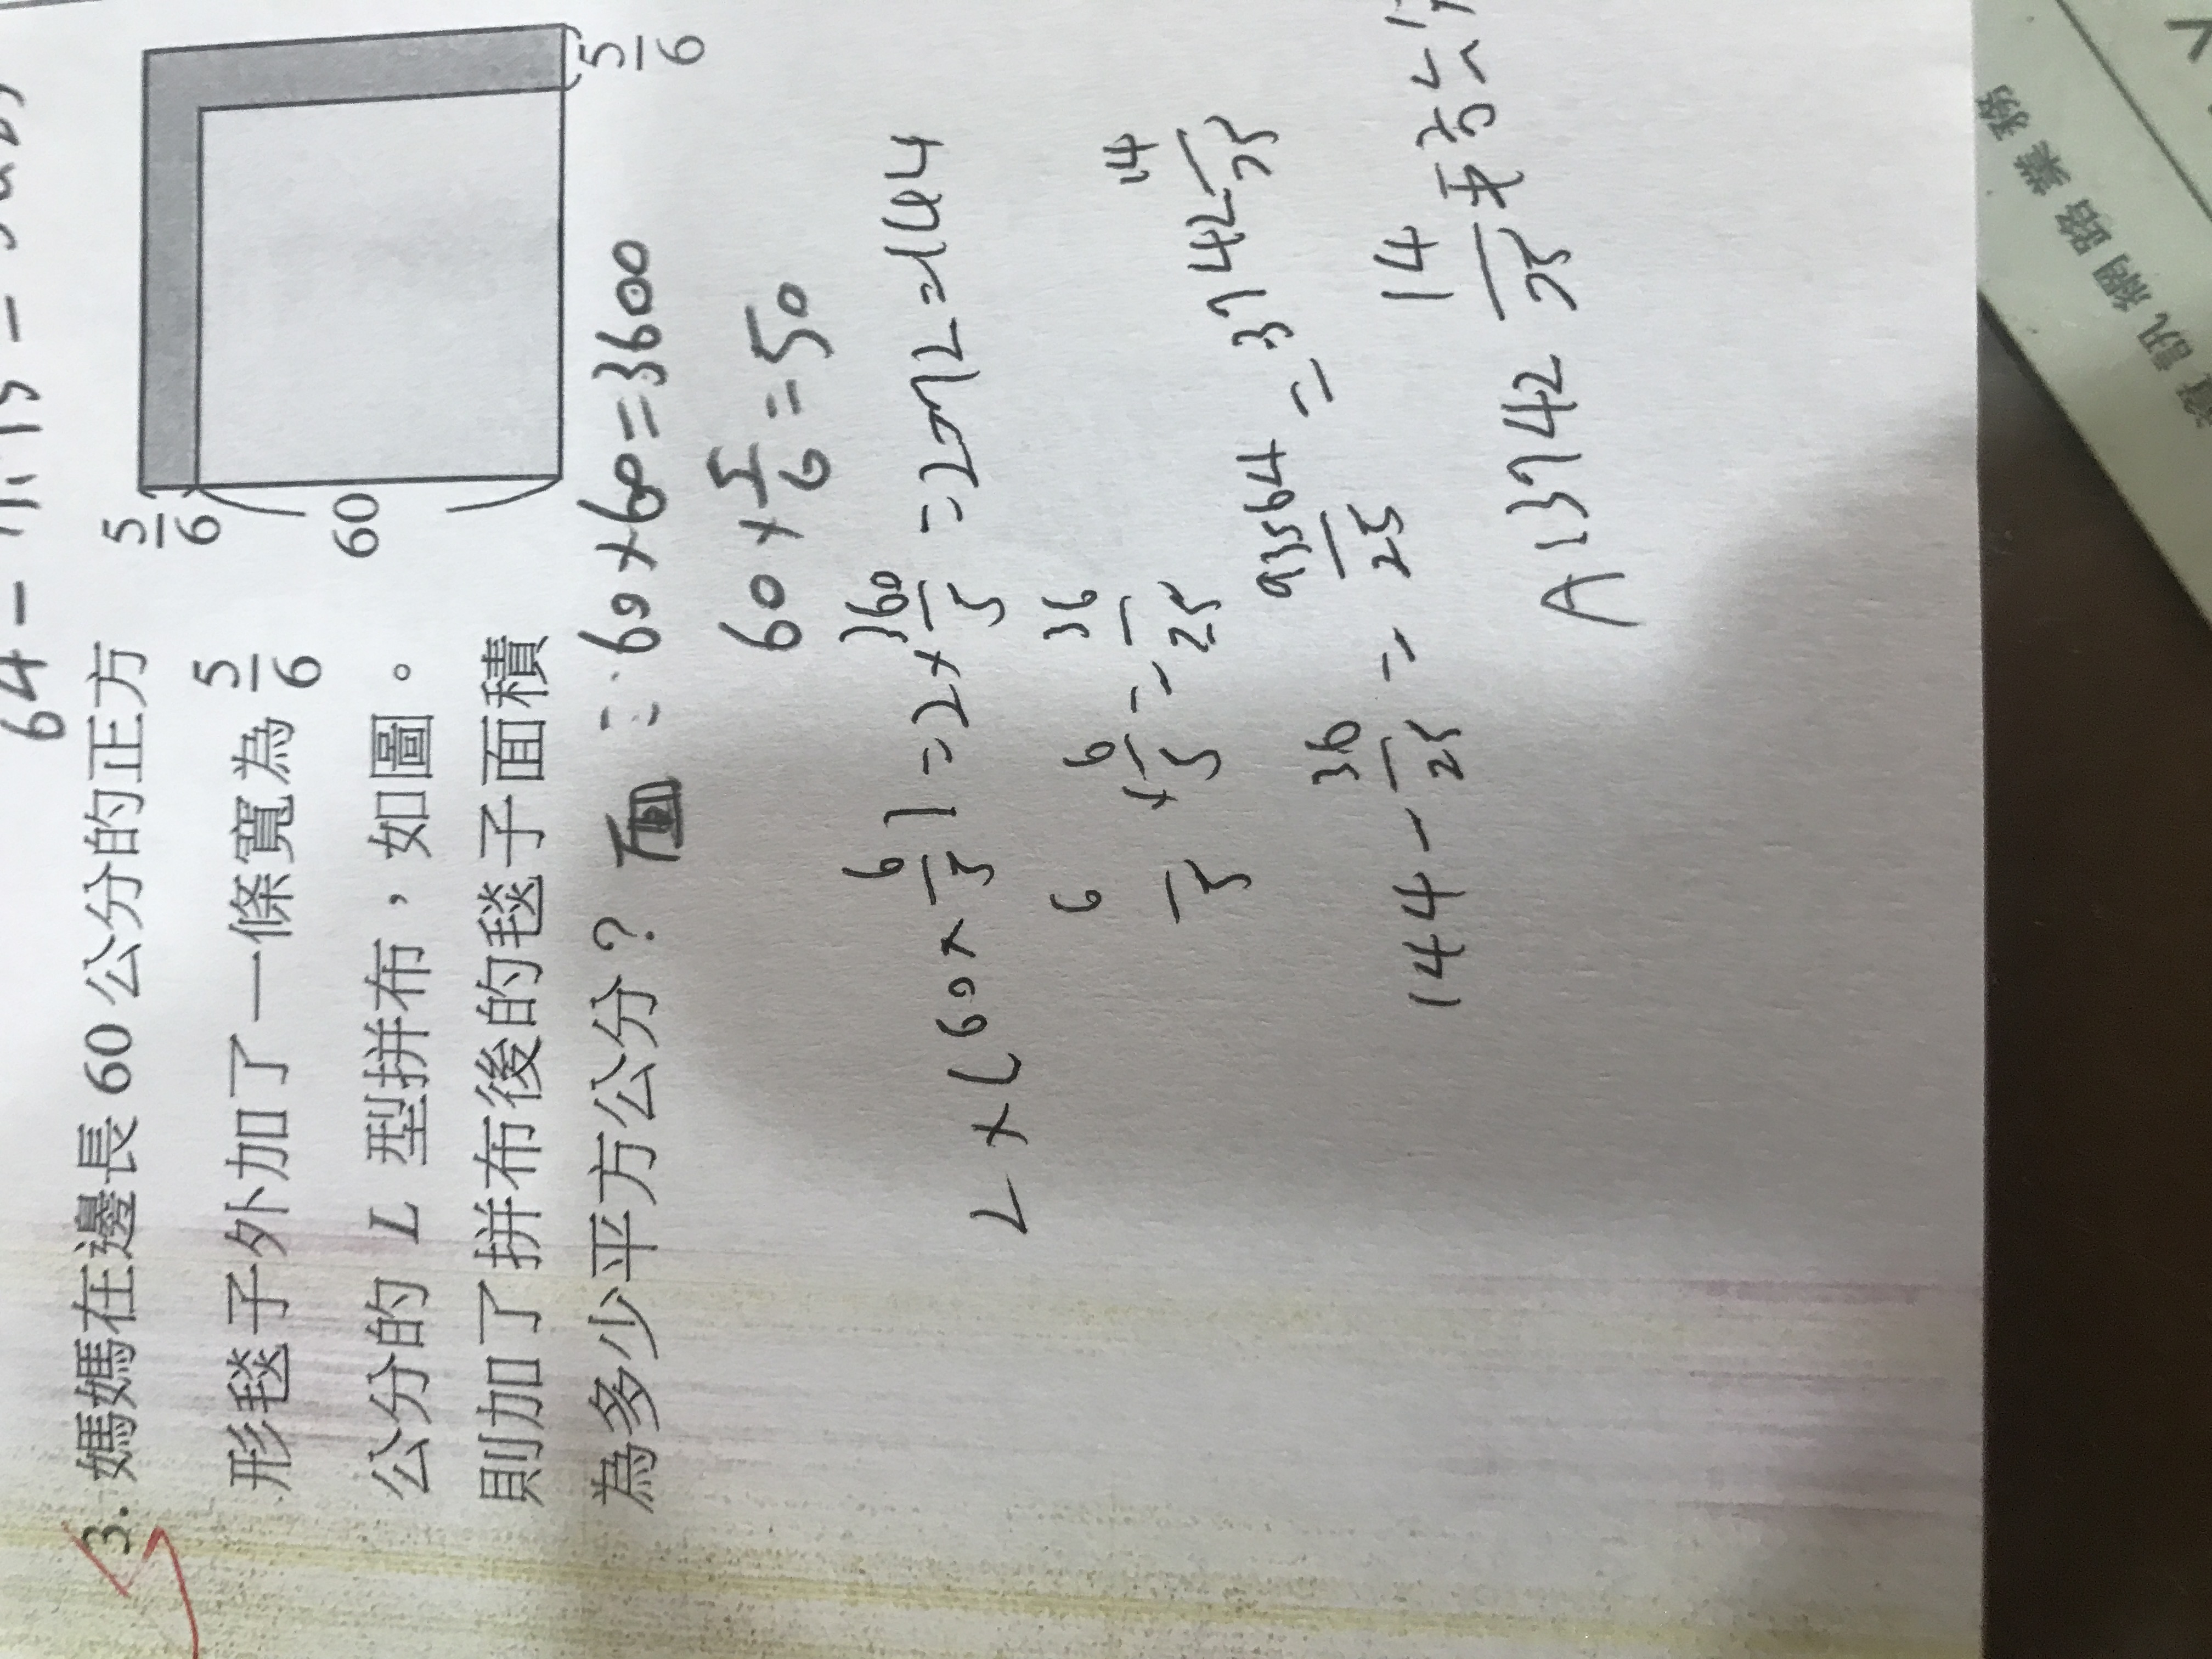 3. 媽媽在邊長 60 公分的正方
形毯子外加了一條寬為 5/6
公分的 L 型拼布，如圖。
則加了拼布後的毯子面積
為多少平方公分？
5/6
60
5/6
面 = 60×60=3600
60×5/6=50
2×(60×6/5)=2×360/5=2×72=144
6/5×6/5=36/25
144-36/25= 93564/25=3742 14/25
A:3742 14/25 平方公分
資訊網路業務